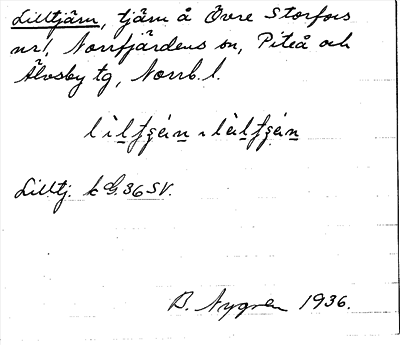 Lilltjärn, tjärn å Övre Storfors
nr 1, Norrfjärdens sn, Piteå och
Älvsby tg, Norrb. l.
Lilltj. k G. 36 SV.
B. Nygren 1936.